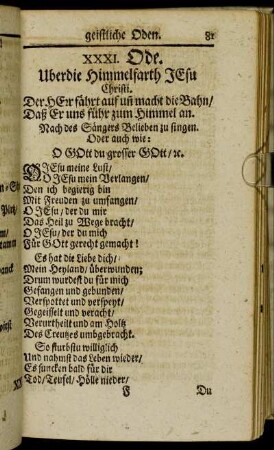 geistliche Oden. 81
XXXI. Ode.
Uberdie Himmelfarth JEsu
Christi.
Der HErr fährt auf uñ macht die Bahn/
Daß Er uns führ zum Himmel an.
Nach des Sängers Belieben zu singen.
Oder auch wie:
O GOtt du grosser GOtt/ ꝛc.
O JEsu meine Lust/
O JEsu mein Verlangen/
Den ich begierig bin
Mit Freuden zu umfangen/
O JEsu/ der du mir
Das Heil zu Wege bracht/
O JEsu/ der du mich
Für GOtt gerecht gemacht!
Es hat die Liebe dich/
Mein Heyland/ überwunden;
Drum wurdest du für mich
Gefangen und gebunden/
Verspottet und verspeyt/
Gegeisselt und veracht/
Verurtheilt und am Holtz
Des Creutzes umbgebracht.
So sturbstu williglich
Und nahmst das Leben wieder/
Es suncken bald für dir
Tod/ Teufel/ Hölle nieder/
F Du